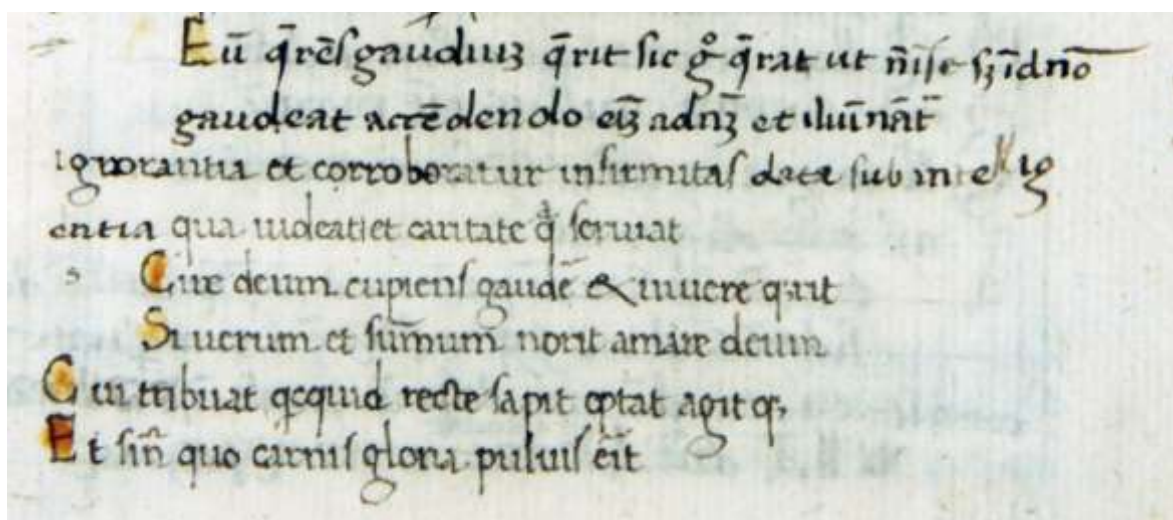 Eū q̄rēſ gaudiuꝫ q̄rit ſic g̊ q̄rat ut n̄ i ſe ſꝫ ī dn̄o
gaudeat accēdendo eīꝫ adn̄ꝫ et iluīnāt̄
ignorantia et corroboratur infirmitaſ data ſub intellig
entia qua uideat et caritate q̄ ſeruiat
deum cupienſ gaudē & uiuere q̄rit
Si uerum et ſum̄um norit amare deum
Cui tribuat q̄cquid recte ſapit optat agit qꝫ
Et ſin̄ quo carniſ gloria puluiſ erit